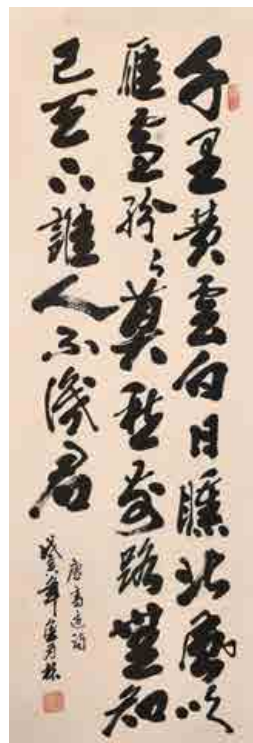 千里黄雲白日曛北風吹
雁雪紛々莫愁前路無知
己天下誰人不識君
唐高適詩